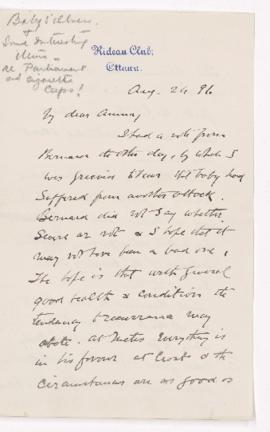 Baby's illness.
&
Some interesting
items -
re Parliament
and cigarette
Cups!
Rideau Club,
Ottawa.
Aug. 26. 96
My dear Ammy,
I had a note from
Bernard the other day, by which I
was grieved to hear that baby had
suffered from another attack.
Bernard did not say whether
severe or not & I hope that it
may not have been a bad one.
The hope is that with general
good health & condition the
tendency to recurrence may
abate. At Metis everything is
in his favour at least & the
circumstances are as good as